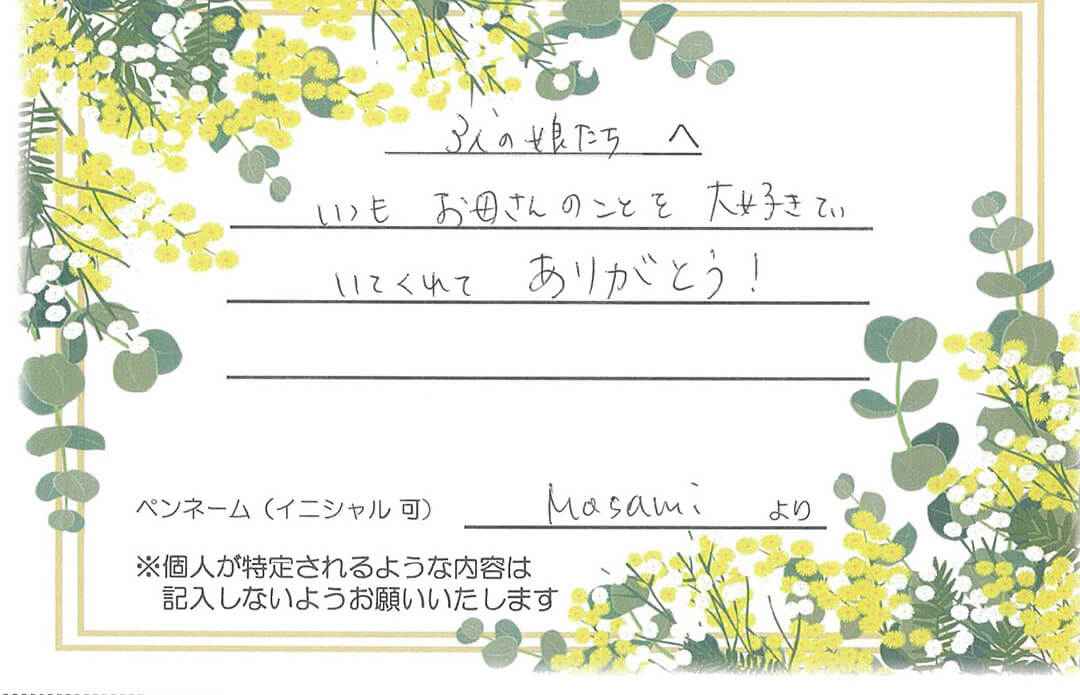 3人の娘たち へ
いつも お母さんのことを 大好きでい
いてくれて ありがとう!
ペンネーム（イニシャル 可） Masami より
※個人が特定されるような内容は
記入しないようお願いいたします